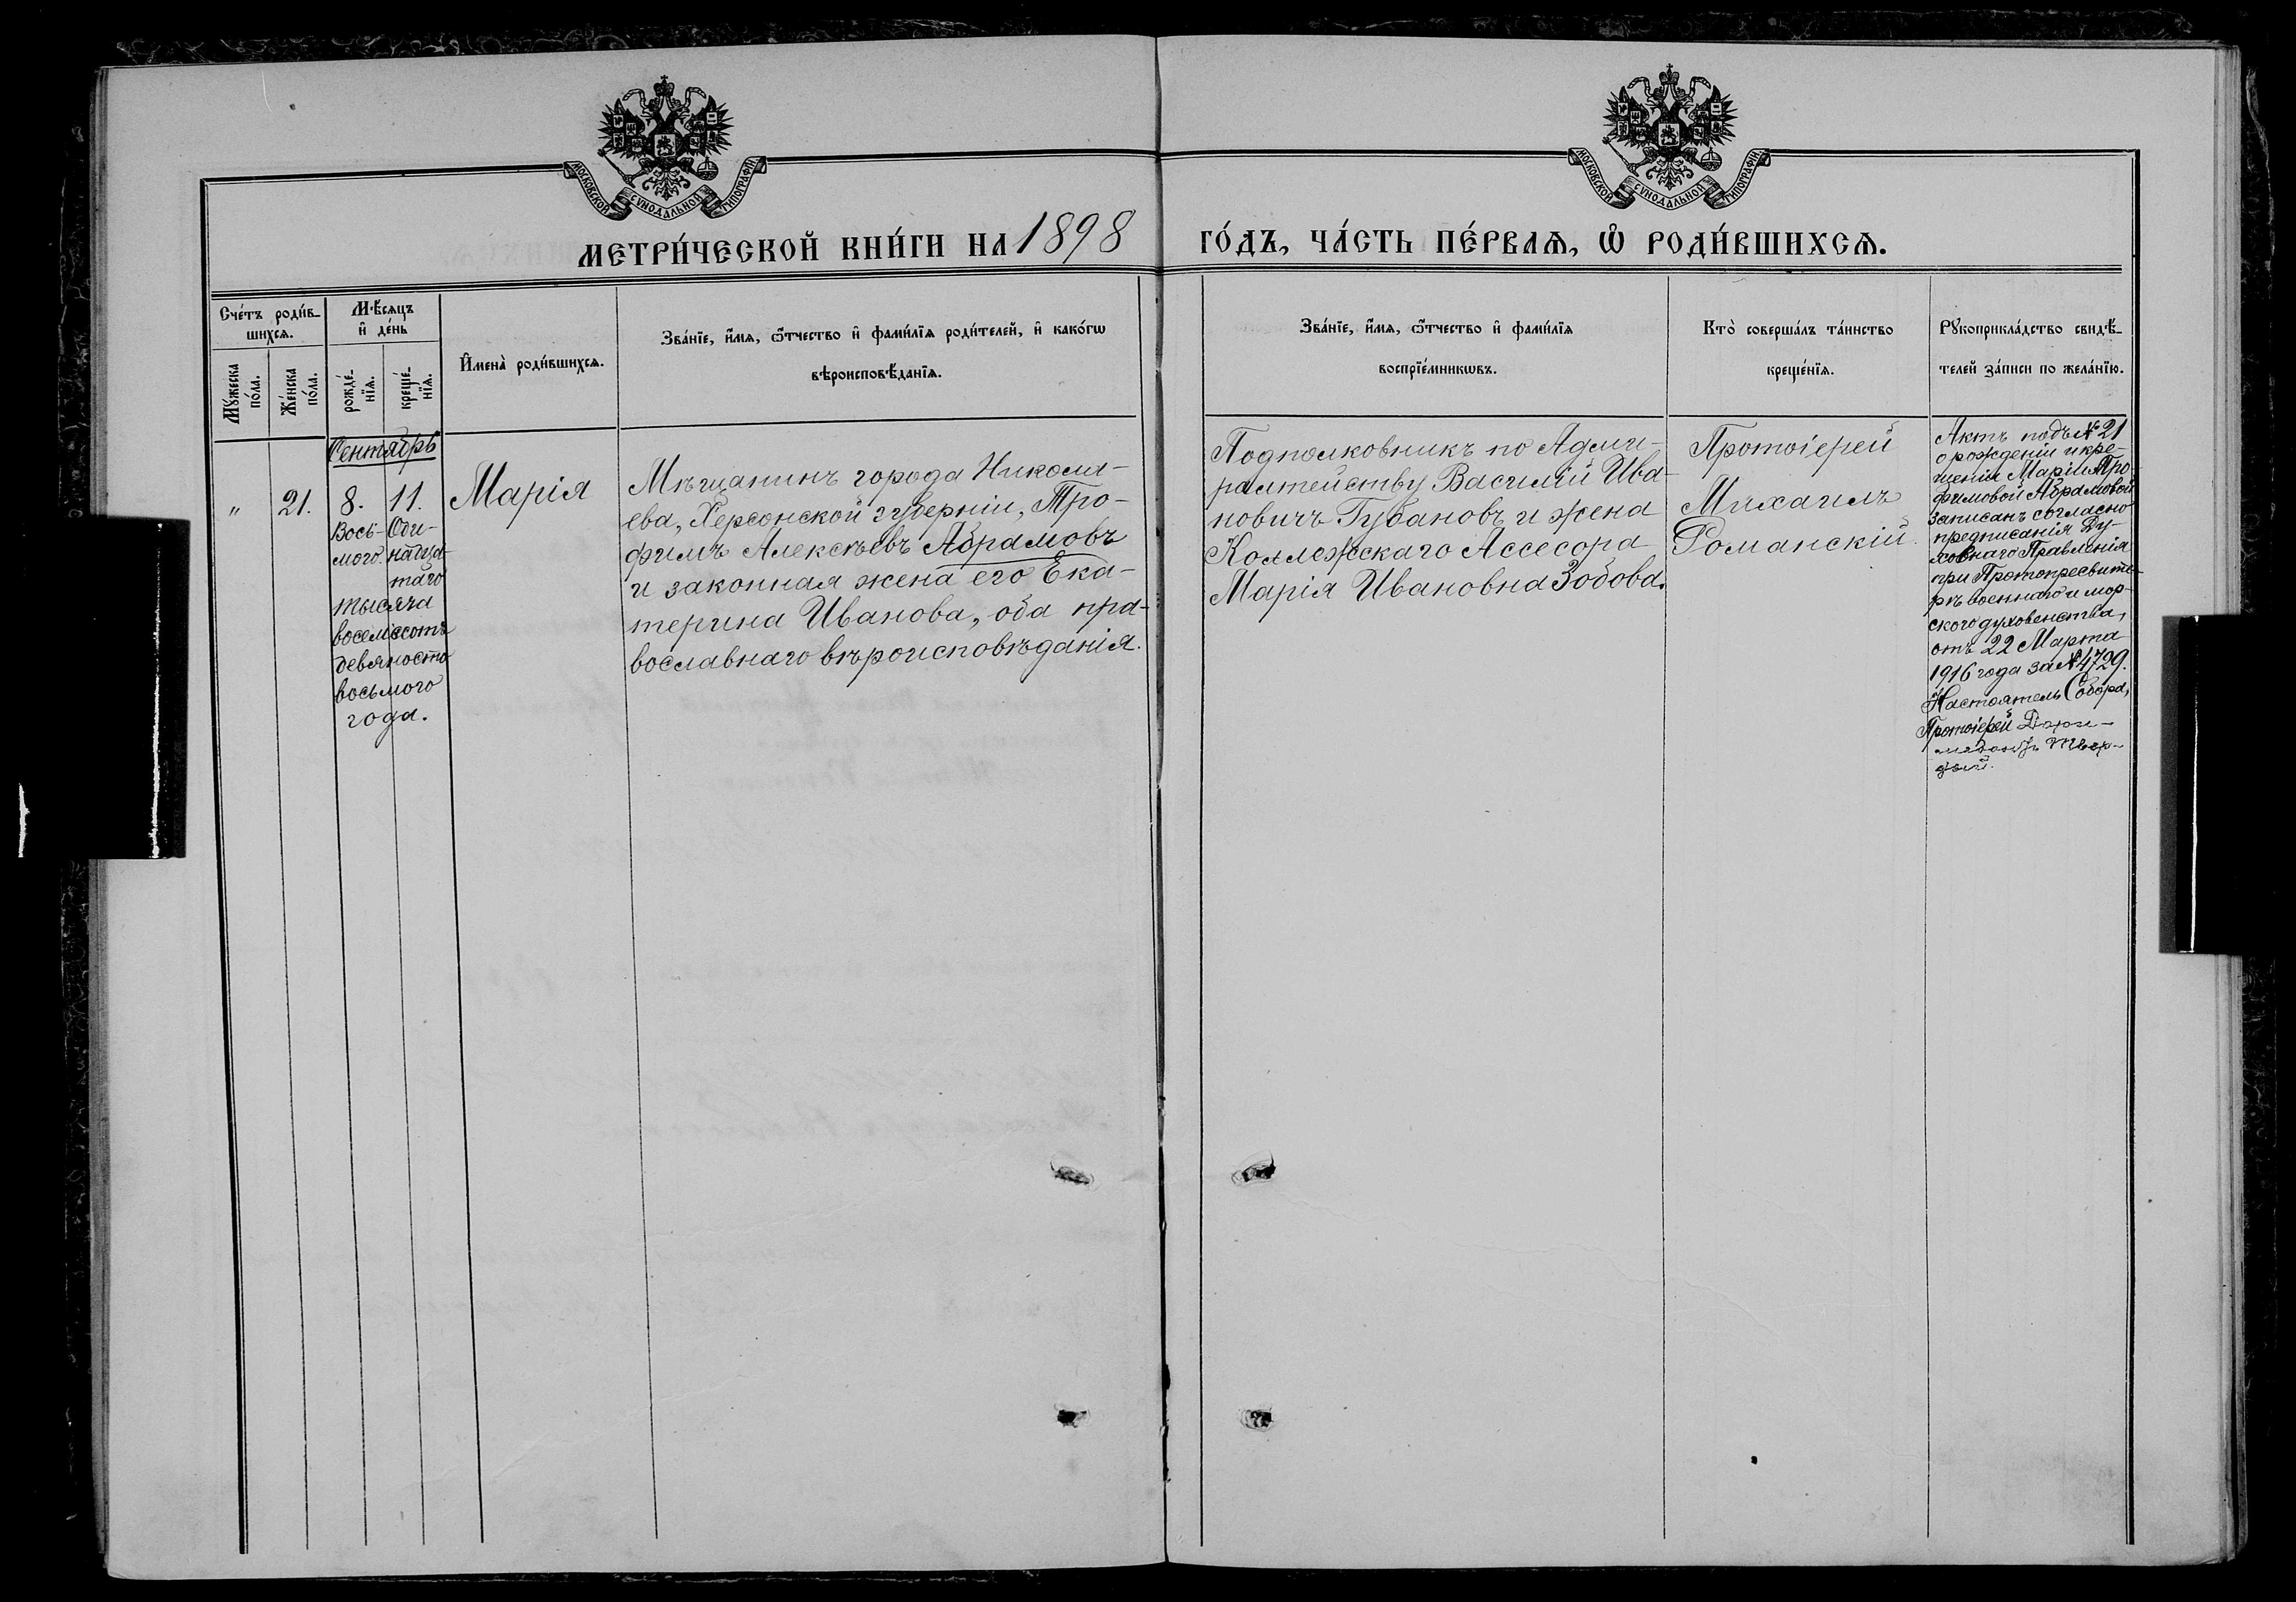 МОСКОВСКОЙ СѴНОДАЛЬНОЙ ТИПОГРАФІИ
МОСКОВСКОЙ СѴНОДАЛЬНОЙ ТИПОГРАФІИ
МЕТРИ́ЧЕСКОЙ КНИ́ГИ НА 1898 ГО́ДЪ, ЧА́СТЬ ПЕ́РВАѦ, Ѽ РОДИ́ВШИХСѦ.
Сче́тъ роди́в-
шихсѧ.
Мꙋ́жеска
по́ла.
Же́нска
по́ла.
Мѣ́сѧцъ
и҆ де́нь
рожде́-
нїѧ.
креще́-
нїѧ.
И҆мена̀ роди́вшихсѧ.
Зва́нїе, и҆́мѧ, ѻ҆́тчество и҆ фами́лїѧ роди́телей, и҆ како́гѡ
вѣроисповѣ́данїѧ.
Зва́нїе, и҆́мѧ, ѻ҆́тчество и҆ фами́лїѧ
воспрїе́мникѡвъ.
Кто̀ соверша́лъ та́инство
креще́нїѧ.
Рꙋкоприкла́дство свидѣ́-
телей за́писи по жела́нїю.
Сентябрь
„ 21. 8. 11.
Вось-
мого.
Оди-
надца-
таго
тысяча
восемьсотъ
девяносто
восьмого
года.
Марія
Мѣщанинъ города Никола-
ева, Херсонской губерніи, Тро-
фимъ Алексѣевъ Абрамовъ
и законная жена его Ека-
терина Иванова, оба пра-
вославнаго вѣроисповѣданія.
Подполковникъ по Адми-
ралтейству Василій Ива-
новичъ Губановъ и жена
Коллежскаго Ассесора
Марія Ивановна Зобова.
Протоіерей
Михаилъ
Романскій.
Актъ подъ № 21
о рожденіи и кре-
щеніи Маріи Тро-
фимовой Абрамовой
записанъ согласно
предписанія Ду-
ховнаго Правленія
при Протопресвите-
рѣ военнаго и мор-
ского духовенства,
отъ 22 Марта
1916 года за № 4729.
Настоятель Собора,
Протоіерей